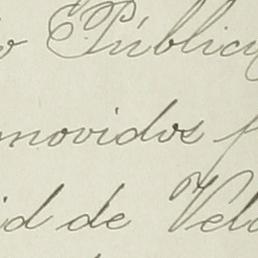 o E. Público
movidos p
id de Vela